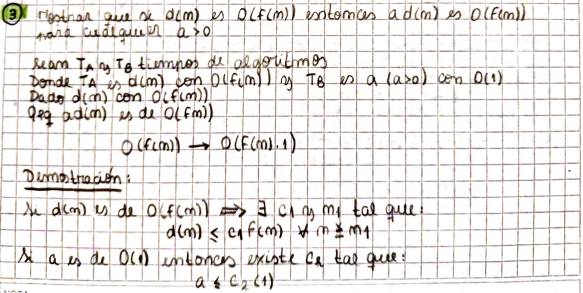 ③ Mostrar que si d(n) es O(f(n)) entonces ad(n) es O(f(n))
para cualquier a>0
Sean TA y TB tiempos de algoritmos
Donde TA es d(n) con O(f(n)) y TB es a (a>0) con O(1)
Dado d(n) con O(f(n))
Qeq ad(n) es de O(f(n))
O(f(n)) → O(f(n).1)
Demostración:
Si d(n) es de O(f(n)) ⟹ ∃ c1 y n1 tal que:
d(n) ≤ c1 f(n) ∀ n ≥ n1
Si a es de O(1) entonces existe c2 tal que:
a ≤ c2 (1)